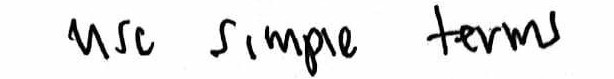 use simple terms